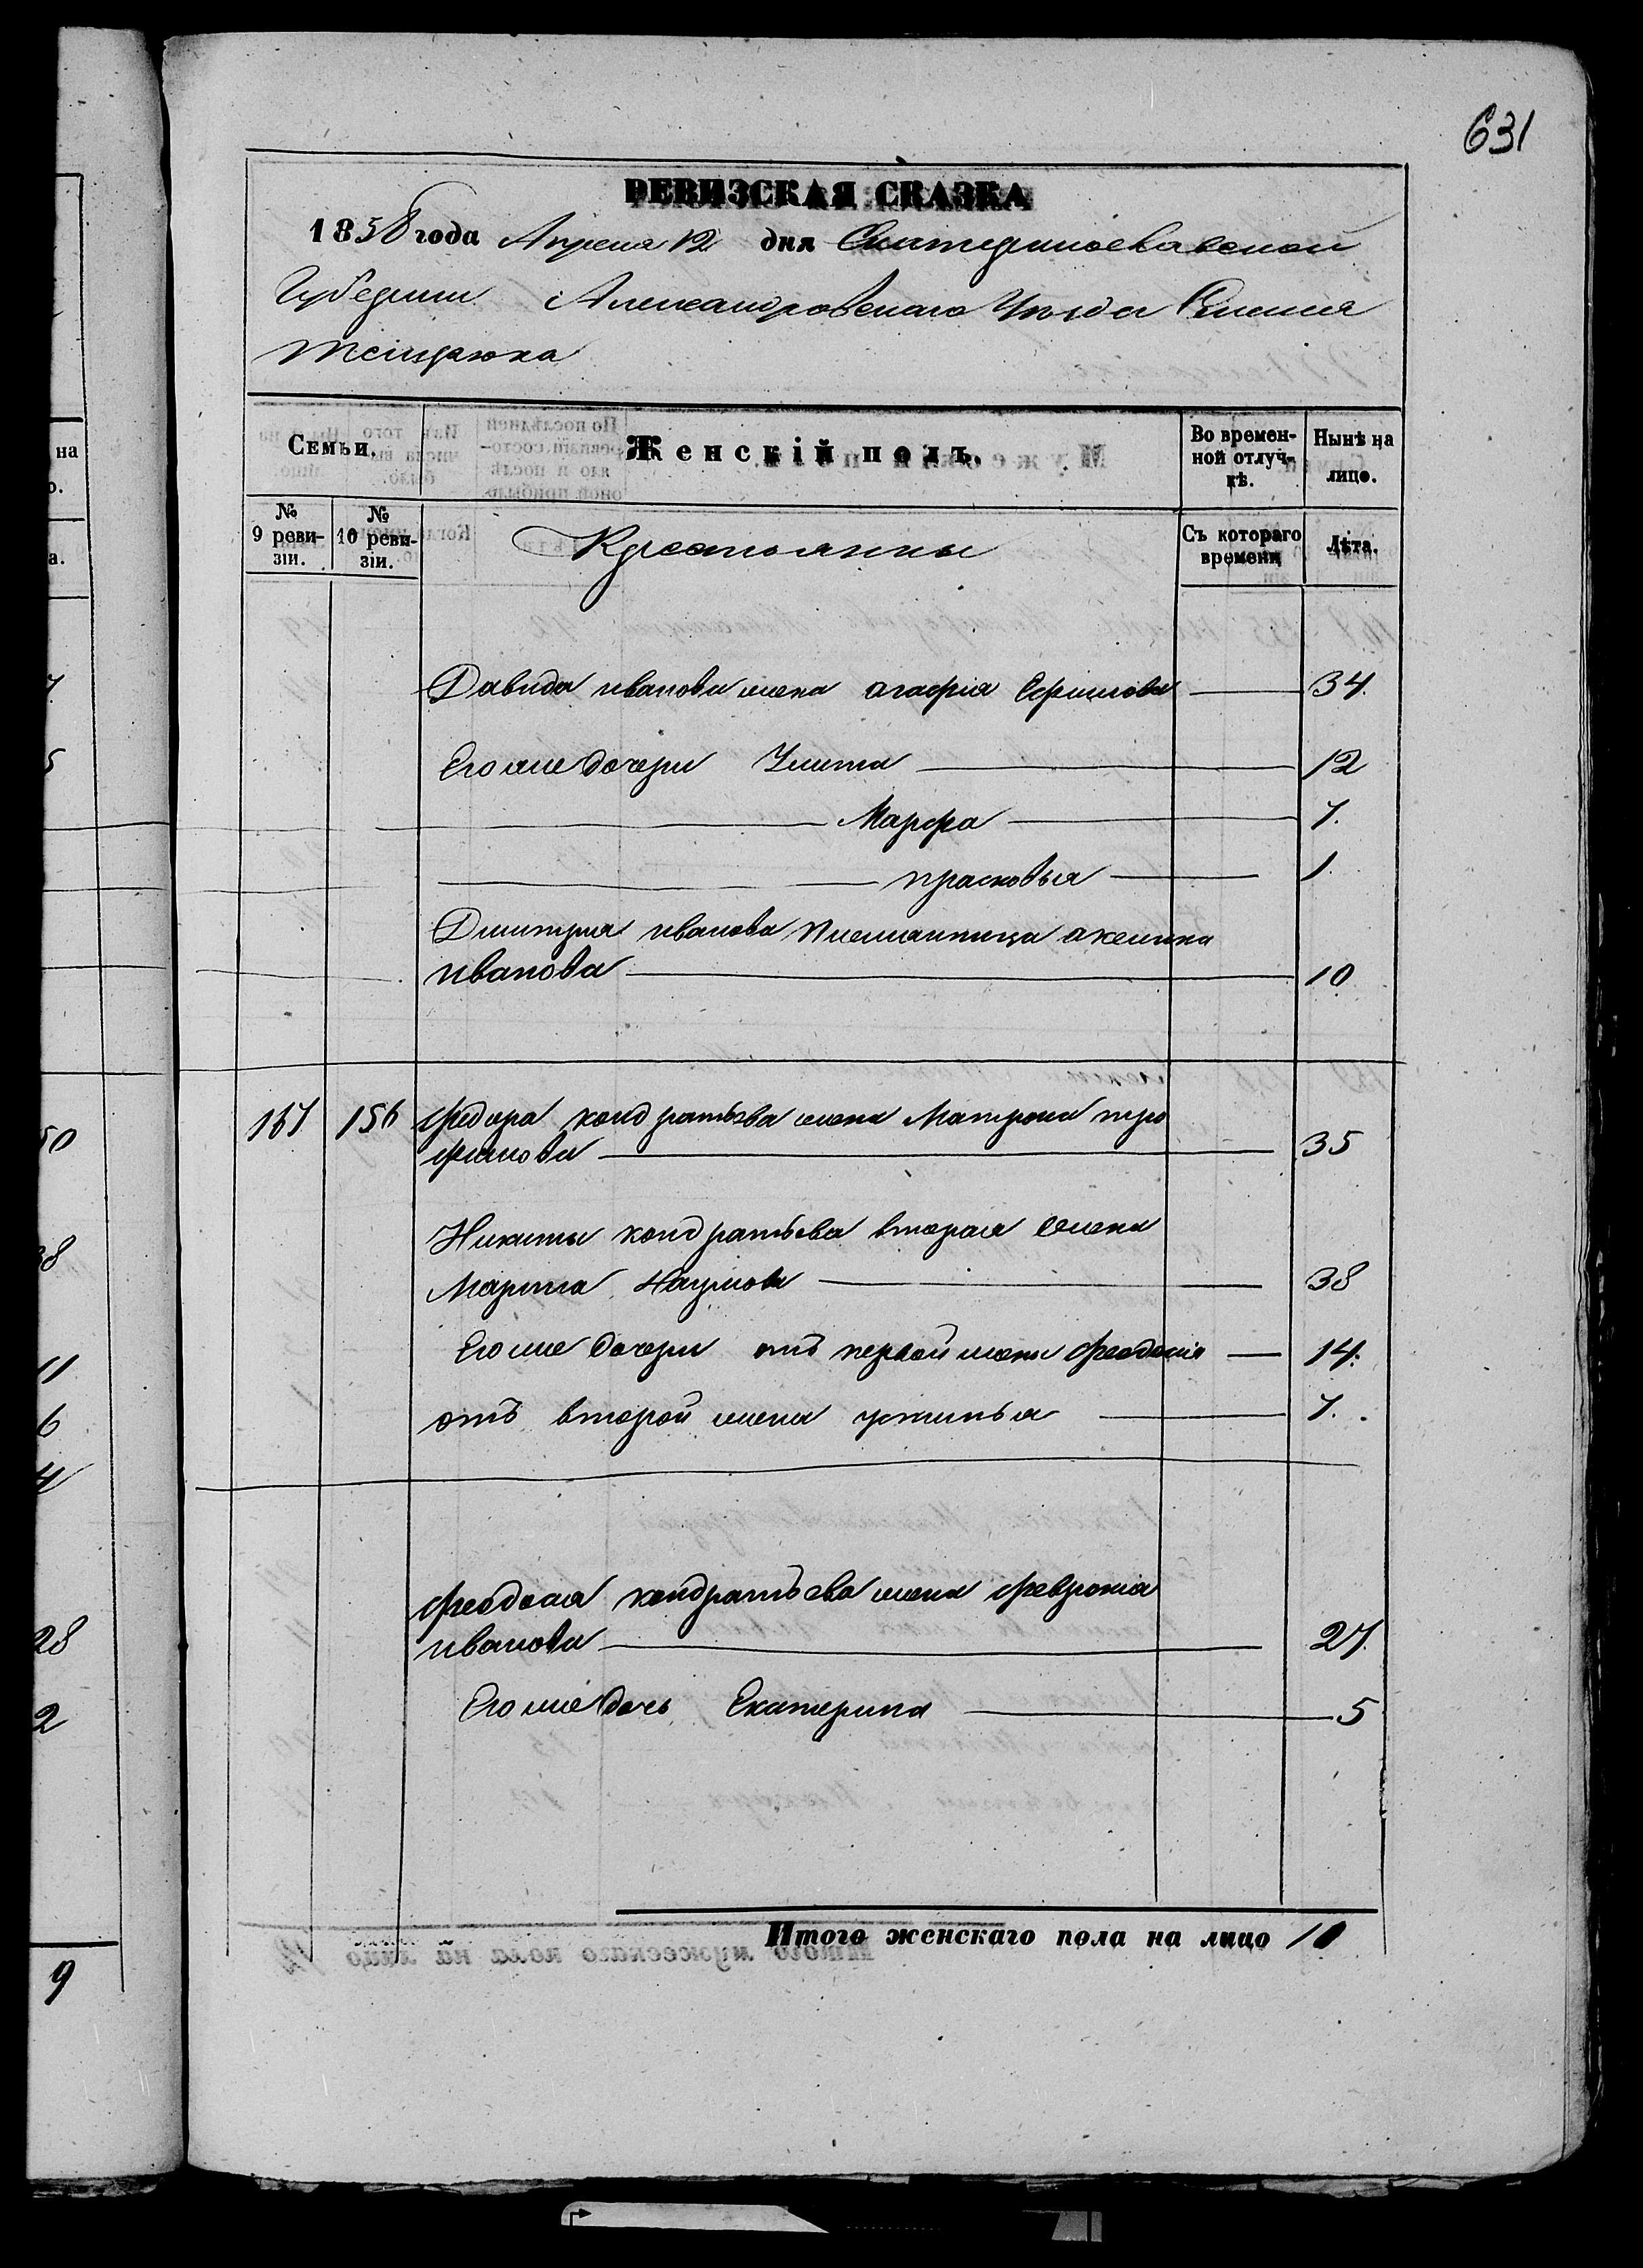 631
РЕВИЗСКАЯ СКАЗКА
1858 года Апреля 12 дня Екатеринославской
Губернии Александровскаго Уезда Селения
Жеребца
Семьи.
Женскій полъ.
Во времен-
ной отлуч-
кѣ.
Нынѣ на
лицо.
№
9 реви-
зіи.
№
10 реви-
зіи.
Крестьянны
Съ котораго
времени
Лѣта.
Давида иванова жена агафія Ефимова 34.
Его же дочери Улита 12
Марфа 7.
прасковья 1.
Дмитрия иванова племянница акелина
иванова 10
157 156 Федора кондратьева жена Матрона тро
фимова 35
Никиты кондратьева вторая жена
Марина Наумова 38
Его же дочери отъ первой жены Феодосія 14.
отъ второй жены устинья 7.
Феодосия кондратьева жена Феврония
иванова 27.
Его же дочь Екатерина 5
Итого женскаго пола на лицо 10
на
о.
а.
7
5
50
38
11
6
4
28
2
9